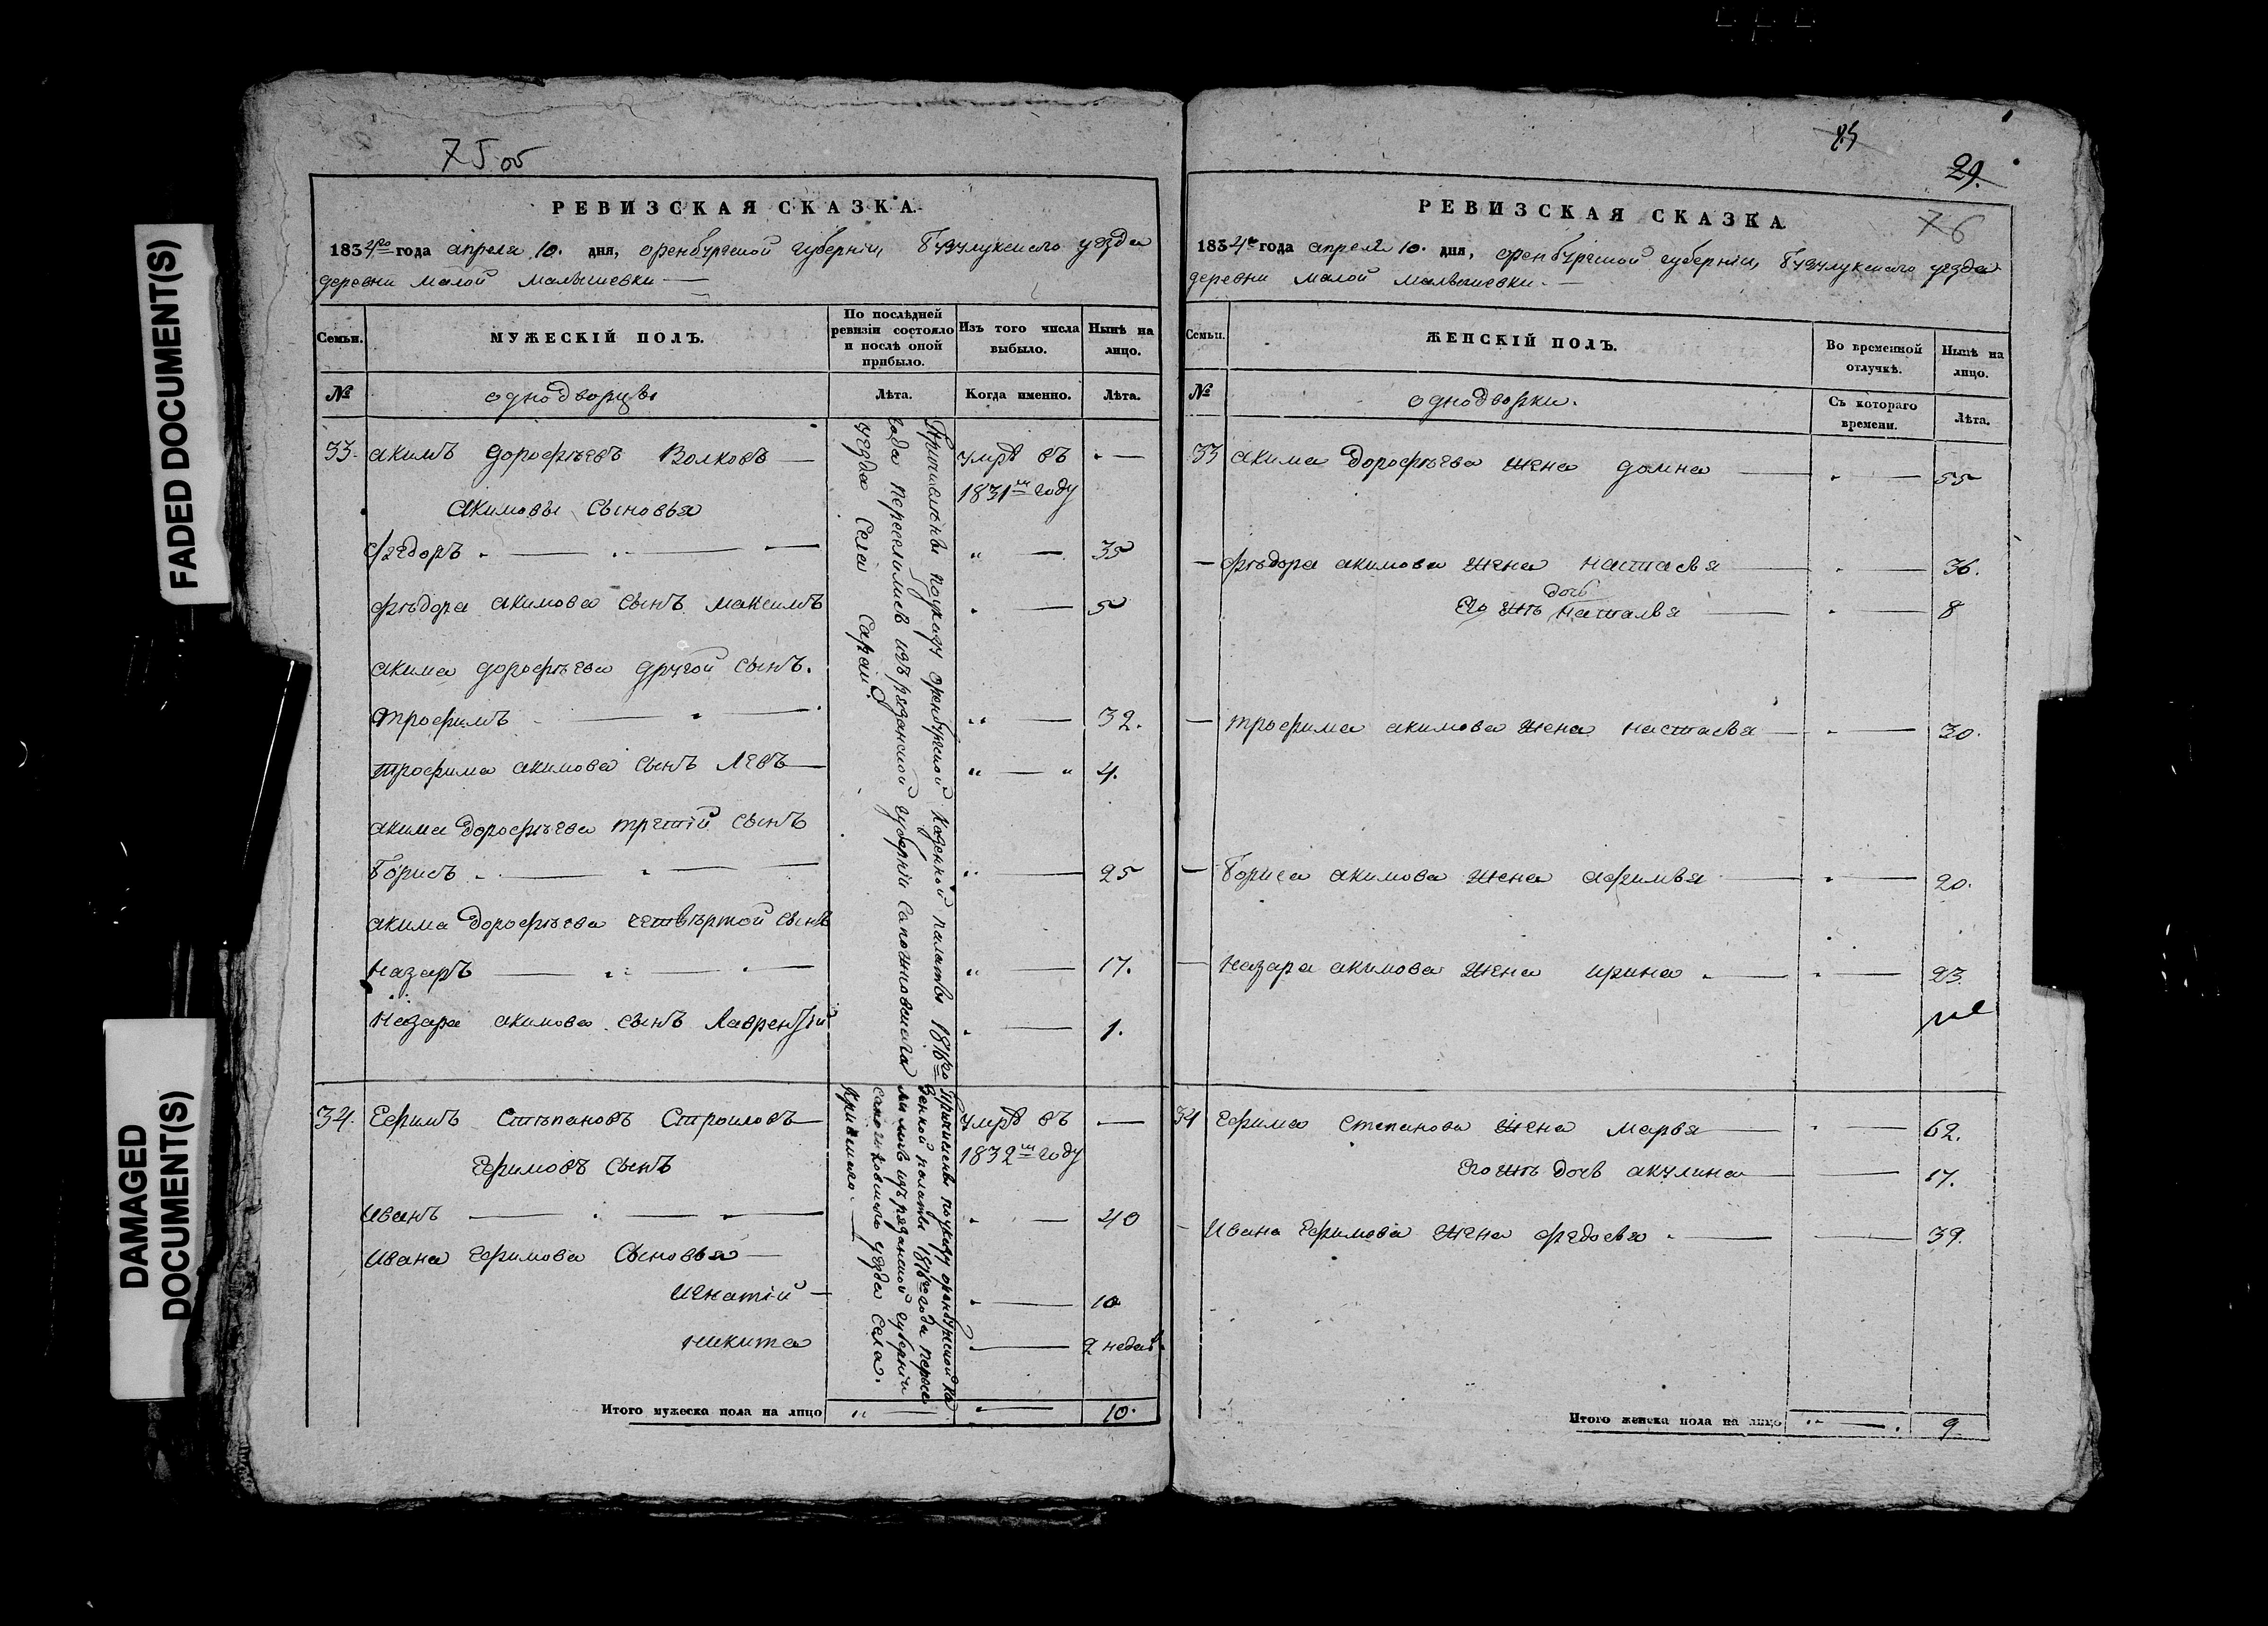 FADED DOCUMENT(S)
DAMAGED
DOCUMENT(S)
75 об
РЕВИЗСКАЯ СКАЗКА
1834го года апреля 10. дня, оренбургской губерніи, бузулукскаго уезда
деревни малой малышевки
Семьи.
МУЖЕСКІЙ ПОЛЪ.
По послѣдней
ревизіи состояло
и послѣ оной
прибыло.
Изъ того числа
выбыло.
Нынѣ на
лицо.
№
однодворцы
Лѣта.
Когда именно.
Лѣта.
33. акимъ дорофѣевъ Волковъ
умръ въ
1831м году
акимовы сыновья
Ѳеодоръ 35
фѣдора акимова сынъ максимъ 5
акима дорофѣева другой сынъ.
трофимъ 32.
трофима акимова сынъ левъ 4.
акима дорофѣева третій сынъ
борисъ 25
акима дорофѣева четвѣртой сынъ
назаръ 17.
назара акимова сынъ лаврентій 1.
Причислены поуказу оренбургской казенной палаты 1816го
года переселились изъ рязанской губерніи сапожковскаго
уезда села сараи.
34. Ефимъ стѣпановъ строиловъ
умръ въ
1832м году
Ефимовъ сынъ
иванъ 40
ивана ефимова сыновья
игнатій 10
никита 2 недель
Причислены поуказу оренбургской ка
зенной палаты 1816го года пересе
лились изъ рязанской губерніи
сапожковскаго уезда села.
Итого мужеска пола на лицо 10.
29.
76
РЕВИЗСКАЯ СКАЗКА
1834го года апреля 10. дня, оренбургской губерніи, бузулукскаго уезда
деревни малой малышевки.
Семьи.
ЖЕНСКІЙ ПОЛЪ.
Во временной
отлучкѣ.
Нынѣ на
лицо.
№
однодворки.
Съ котораго
времени.
Лѣта.
33 акима дорофѣева жена домна 55
фѣдора акимова жена настасья 36.
дочь
его жъ наталья 8
трофима акимова жена настасья 30.
бориса акимова жена афимья 20.
назара акимова жена ирина 23.
34 Ефима степанова жена марья 62.
его жъ дочь акулина 17.
ивана ефимова жена федосья 39.
Итого женска пола на лицо 9